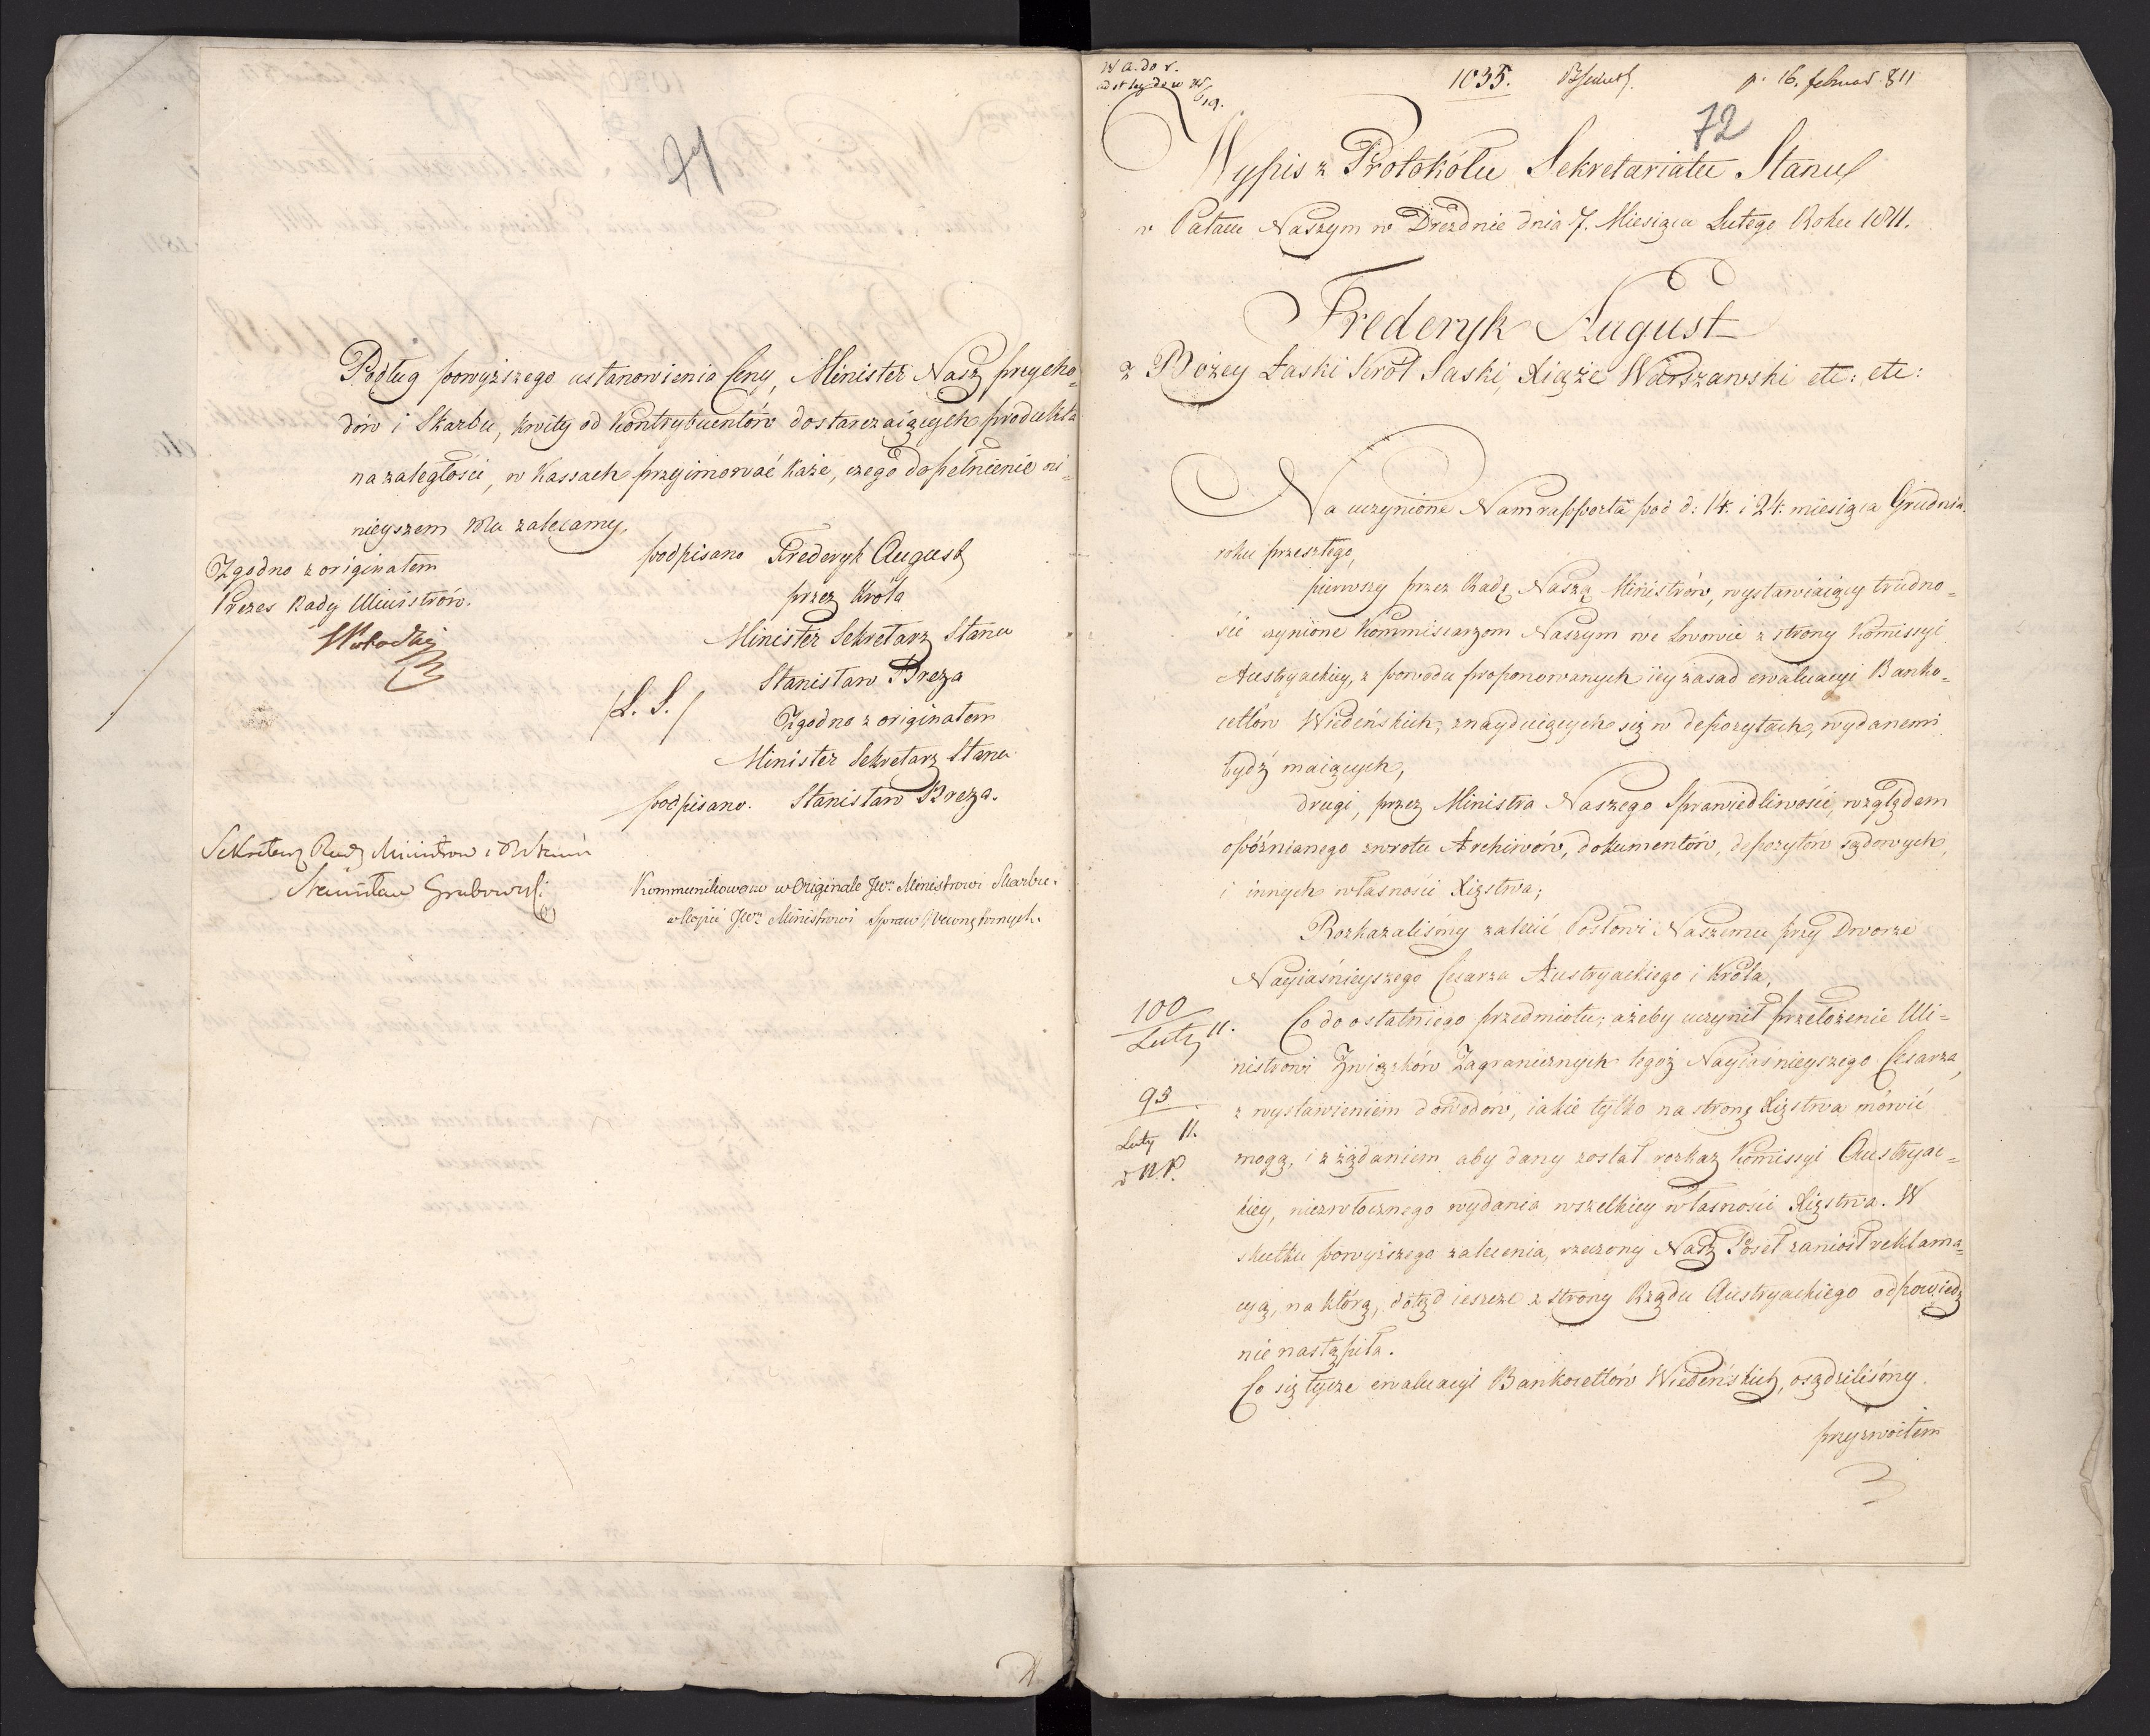 71
Podług powyższego ustanowienia Ceny, Minister Nasz przycho=
dów i Skarbu, kwity od Kontrybuentów dostarczaiących produkta
na zaległości, w Kassach przyimować każe, czego dopełnienie ni=
nieyszem Mu zalecamy.
podpisano Frederyk August
przez Króla
Minister Sekretarz Stanu
Stanisław Breza
/L. S./
Zgodno z originałem
Minister Sekretarz Stanu
podpisano. Stanisław Breza.
Zgodno z originałem
Prezes Rady Ministrów.
Sekretarz Rady Ministrow i R Stanu
Stanisław Grabowski
Kommunikowano w Originale JWu Ministrowi Skarbu.
w Kopii JWu Ministrowi Spraw Wewnętrznych.
1035. p. 16. februar 811
72
Wypis z Protokółu Sekretariatu Stanu
w Pałacu Naszym w Dreźdnie dnia 7. Miesiąca Lutego Roku 1811.
Frederyk August
z Bożey Łaski Król Saski, Xiąże Warszawski etc: etc:
Na uczynione Nam rapporta pod d: 14. i 24. miesiąca Grudnia
roku przeszłego,
pierwszy przez Radę Naszą Ministrów, wystawiaiący trudno=
ści czynione Kommissarzom Naszym we Lwowie z strony Komissyi
Austryackiey, z powodu proponowanych iey zasad ewaluacyi Banko=
cetlów Wiedeńskich, znayduiących się w depozytach, wydanemi
bydź maiących,
drugi, przez Ministra Naszego Sprawiedliwości, względem
opóźnianego zwrotu Archiwów, dokumentów, depozytów sądowych,
i innych własności Xięstwa;
Rozkazaliśmy zalecić Posłowi Naszemu przy Dworze
Nayiaśnieyszego Cesarza Austryackiego i Króla,
100
Luty 11.
Co do ostatniego przedmiotu, ażeby uczynił przełożenie Mi=
nistrowi Związków Zagranicznych tegoż Nayiaśnieyszego Cesarza,
93
Luty 11.
z wystawieniem dowodów, iakie tylko na stronę Xięstwa mówić
mogą, i z żądaniem aby dany został rozkaz Komissyi Austryac=
kiey, niezwłocznego wydania wszelkiey własności Xięstwa. W
skutku powyższego zalecenia, rzeczony Nasz Poseł zaniósł reklama=
cyą, na którą, dotąd ieszcze z strony Rządu Austryackiego odpowiedź
nie nastąpiła.
Co się tycze ewaluacyi Bankocetlów Wiedeńskich, osądziliśmy
przyzwoitem